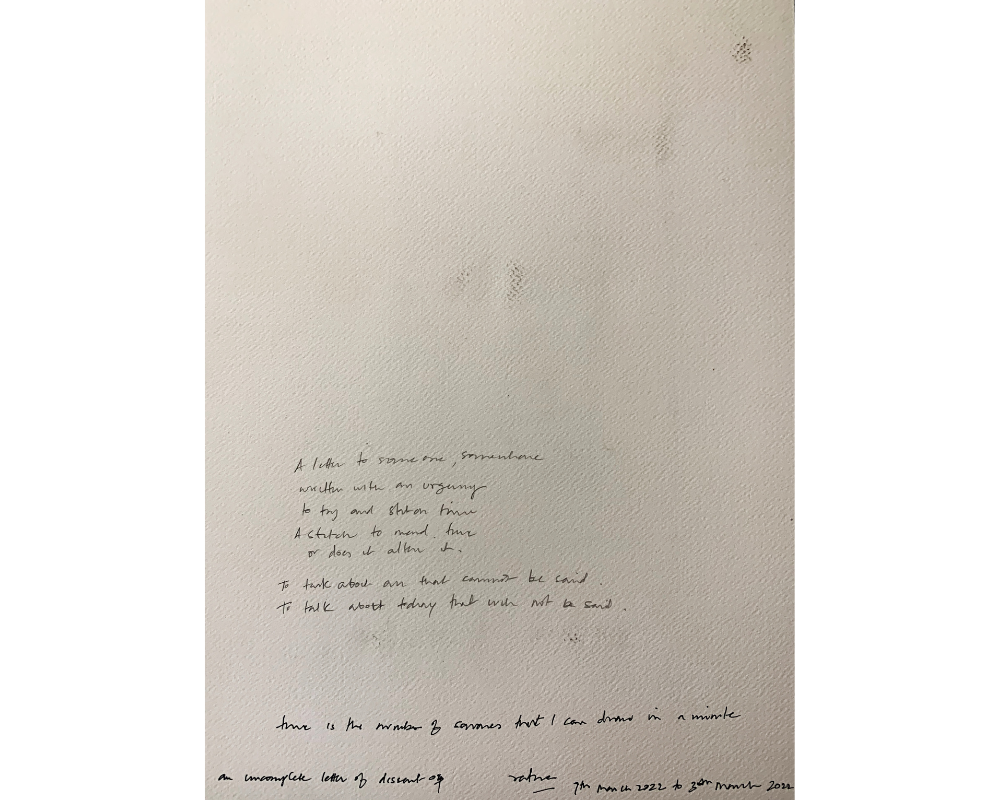 A letter to someone, somewhere
written with an urgency
to try and
A stitch to mend time
or does it alter it.
To talk about all that cannot be said.
To talk about today that will not be said.
time is the number of squares that I can draw in a minute
an uncomplete letter of discent of
7th March 2022 to March 2022